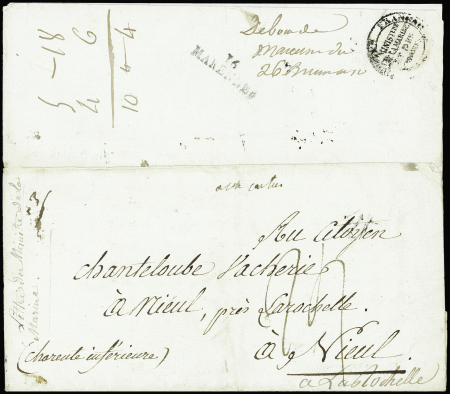 5 - 18
4 6
10 4 4
Debou de
Marenne du
26 Brumaire
16
MARENNES
FRANÇAI
MINISTRE
DE LA MARINE
Lettre du Ministre de la
Marine.
Au Citoyen
Chanteloube Vacherie
à Nieul, près Larochelle.
à Nieul
(Charente inférieure)
a LaRochelle